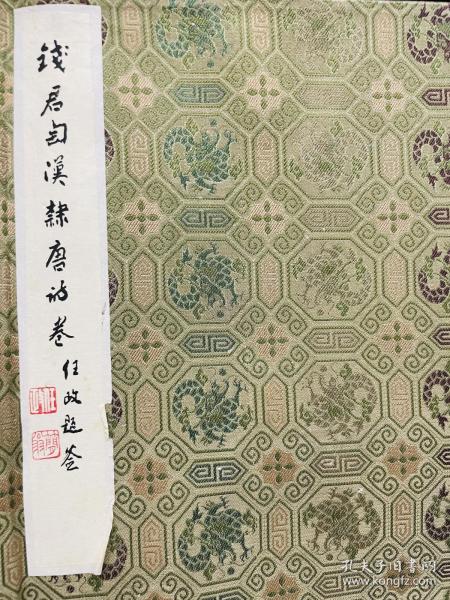 錢君匋漢隸唐詩卷
任政題簽
孔夫子旧书网
www.kongfz.com